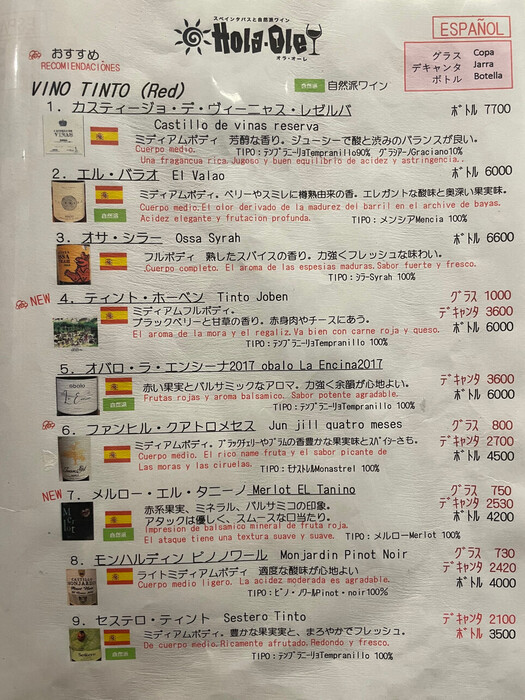 スペインタパスと自然派ワイン
Hola-Ole
オラ・オーレ
ESPAÑOL
グラス Copa
デキャンタ Jarra
ボトル Botella
おすすめ
RECOMIENDACIÓNES
VINO TINTO (Red)
自然派 自然派ワイン
1. カスティージョ・デ・ヴィーニャス・レゼルバ ボトル 7700
Castillo de vinas reserva
ミディアムボディ。芳醇な香り。ジューシーで酸と渋みのバランスが良い。
Cuerpo medio. TIPO:テンプラニーリョTempranillo90% グラシアーノGraciano10%
Una fragancua rica.Jugoso y buen equilibrio de acidez y astringencia..
2. エル・バラオ El Valao ボトル 6000
ミディアムボディ。ベリーやスミレに樽熟由来の香。エレガントな酸味と奥深い果実味。
Cuerpo medio.El olor derivado de la madurez del barril en el archive de bayas.
自然派
Acidez elegante y frutacion profunda. TIPO:メンシアMencia 100%
3. オサ・シラー Ossa Syrah ボトル 6600
フルボディ 熟したスパイスの香り。力強くフレッシュな味わい。
Cuerpo completo. El aroma de las espesias maduras.Sabor fuerte y fresco.
TIPO:シラーSyrah 100%
NEW 4. ティント・ホーベン Tinto Joben グラス 1000
ミディアムフルボディ。 デキャンタ 3600
ブラックベリーと甘草の香り。赤身肉やチーズにあう。
El aroma de la mora y el regaliz.Va bien con carne roja y queso. ボトル 6000
TIPO:テンプラニーリョTempranillo 100%
5. オバロ・ラ・エンシーナ2017 obalo La Encina2017
赤い果実とバルサミックなアロマ。力強く余韻が心地よい。 デキャンタ 3600
Frutas rojas y aroma balsamico. Sabor potente agradable. ボトル 6000
自然派
TIPO:テンプラニーリョTempranillo 100%
6. ファンヒル・クアトロメセス Jun jill quatro meses グラス 800
ミディアムボディ。ブラックチェリーやプラムの香豊かな果実味とスパイシーさも。 デキャンタ 2700
Cuerpo medio. El rico name fruta y el sabor picante de
Las moras y las ciruelas. ボトル 4500
TIPO:モナストレルMonastrel 100%
NEW 7. メルロー・エル・タニーノ Merlot EL Tanino グラス 750
赤系果実、ミネラル、バルサミコの印象。 デキャンタ 2530
アタックは優しく、スムースな口当たり。
Impresion de balsamico mineral de fruta roja. ボトル 4200
El ataque tiene una textura suave y suave.
自然派
TIPO:メルローMerlot 100%
8. モンハルディン ピノノワール Monjardin Pinot Noir グラス 730
ライトミディアムボディ 適度な酸味が心地よい デキャンタ 2420
Cuerpo medio ligero. La acidez moderada es agradable. ボトル 4000
TIPO:ピノ・ノワールPinot・noir100%
9. セステロ・ティント Sestero Tinto デキャンタ 2100
ミディアムボディ。豊かな果実実と、まろやかでフレッシュ。 ボトル 3500
De cuerpo medio.Ricamente afrutado.Redondo y fresco.
自然派
TIPO:テンプラニーリョTempranillo 100%